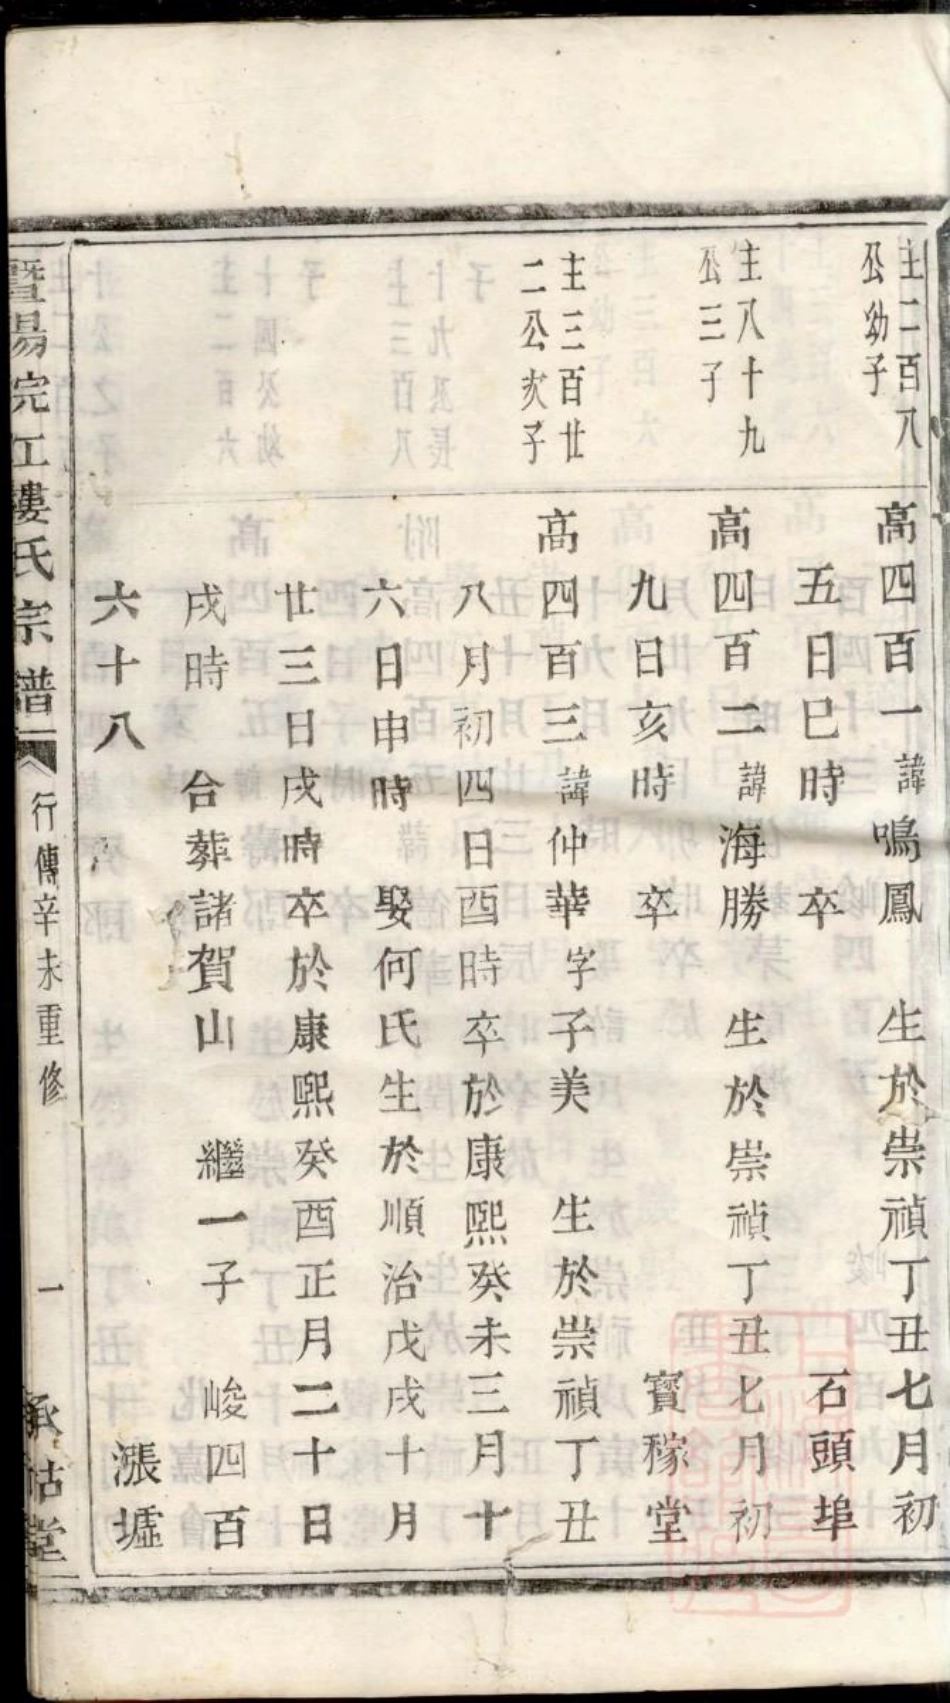 主二百八
公幼子
高四百一諱鳴鳳 生於崇禎丁丑七月初
五日巳時 卒 石頭埠
主八十九
公三子
高四百二諱海勝 生於崇禎丁丑七月初
九日亥時 卒 寶稼堂
主三百廿
二公次子
高四百三諱仲華字子美 生於崇禎丁丑
八月初四日酉時卒於康熙癸未三月十
六日申時 娶何氏生於順治戊戌十月
廿三日戌時卒於康熙癸酉正月二十日
戌時 合葬諸賀山 繼一子 峻四百
六十八 漲墟
暨陽完江婁氏宗譜 行傳辛未重修 一 承祜堂